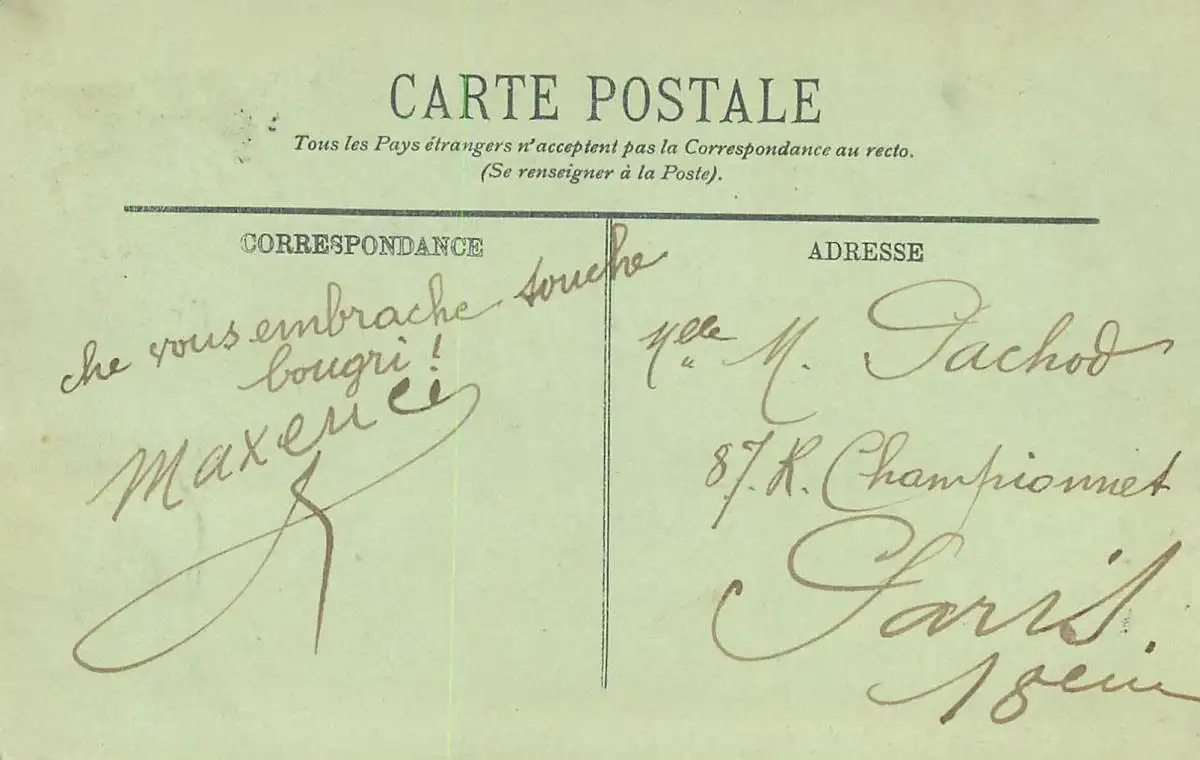 CARTE POSTALE
Tous les Pays étrangers n'acceptent pas la Correspondance au recto.
(Se renseigner à la Poste).
CORRESPONDANCE
che vous embrache touche
bougri !
Maxence
ADRESSE
Melle M. Pachod
87. R. Championnet
Paris
18eme